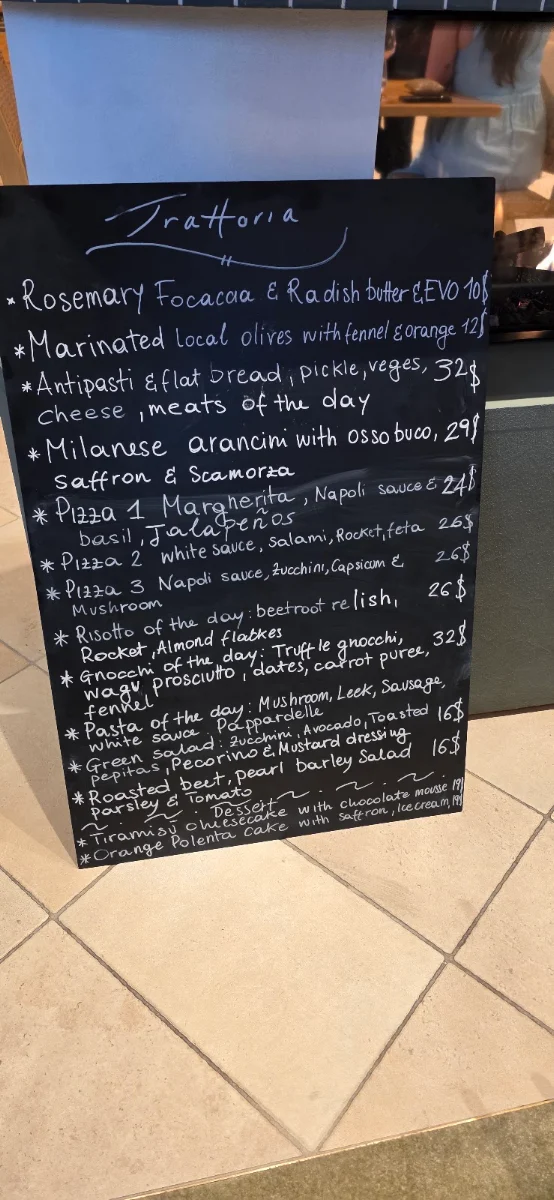 Trattoria
* Rosemary Focacaa & Radish butter & EVO 10$
* Marinated Local olives with fennel & orange 12$
* Antipasti & flat bread, pickle, veges, 32$
cheese, meats of the day
* Milanese arancini with osso buco, 29$
saffron & Scamorza
* Pizza 1 Margherita, Napoli sauce & 24$
basil, Jalapeños
* Pizza 2 white sauce, salami, Rocket, feta 26$
* Pizza 3 Napoli sauce, Zucchini, Capsicum & 26$
Mushroom
* Risotto of the day: beetroot relish, 26$
Rocket, Almond flatkes
* Gnocchi of the day: Truffle gnocchi, 32$
wagu prosciutto, dates, carrot puree,
fennel
* Pasta of the day: Mushroom, Leek, Sausage,
white sauce, Pappardelle
* Green salad: Zucchini, Avocado, Toasted 16$
pepitas, Pecorino & Mustard dressing
* Roasted beet, pearl barley Salad 16$
parsley & Tomato
~ ~ ~ Dessert ~ ~ ~ ~
* Tiramisu cheesecake with chocolate mousse 19$
* Orange Polenta cake with saffron, Ice cream, 19$